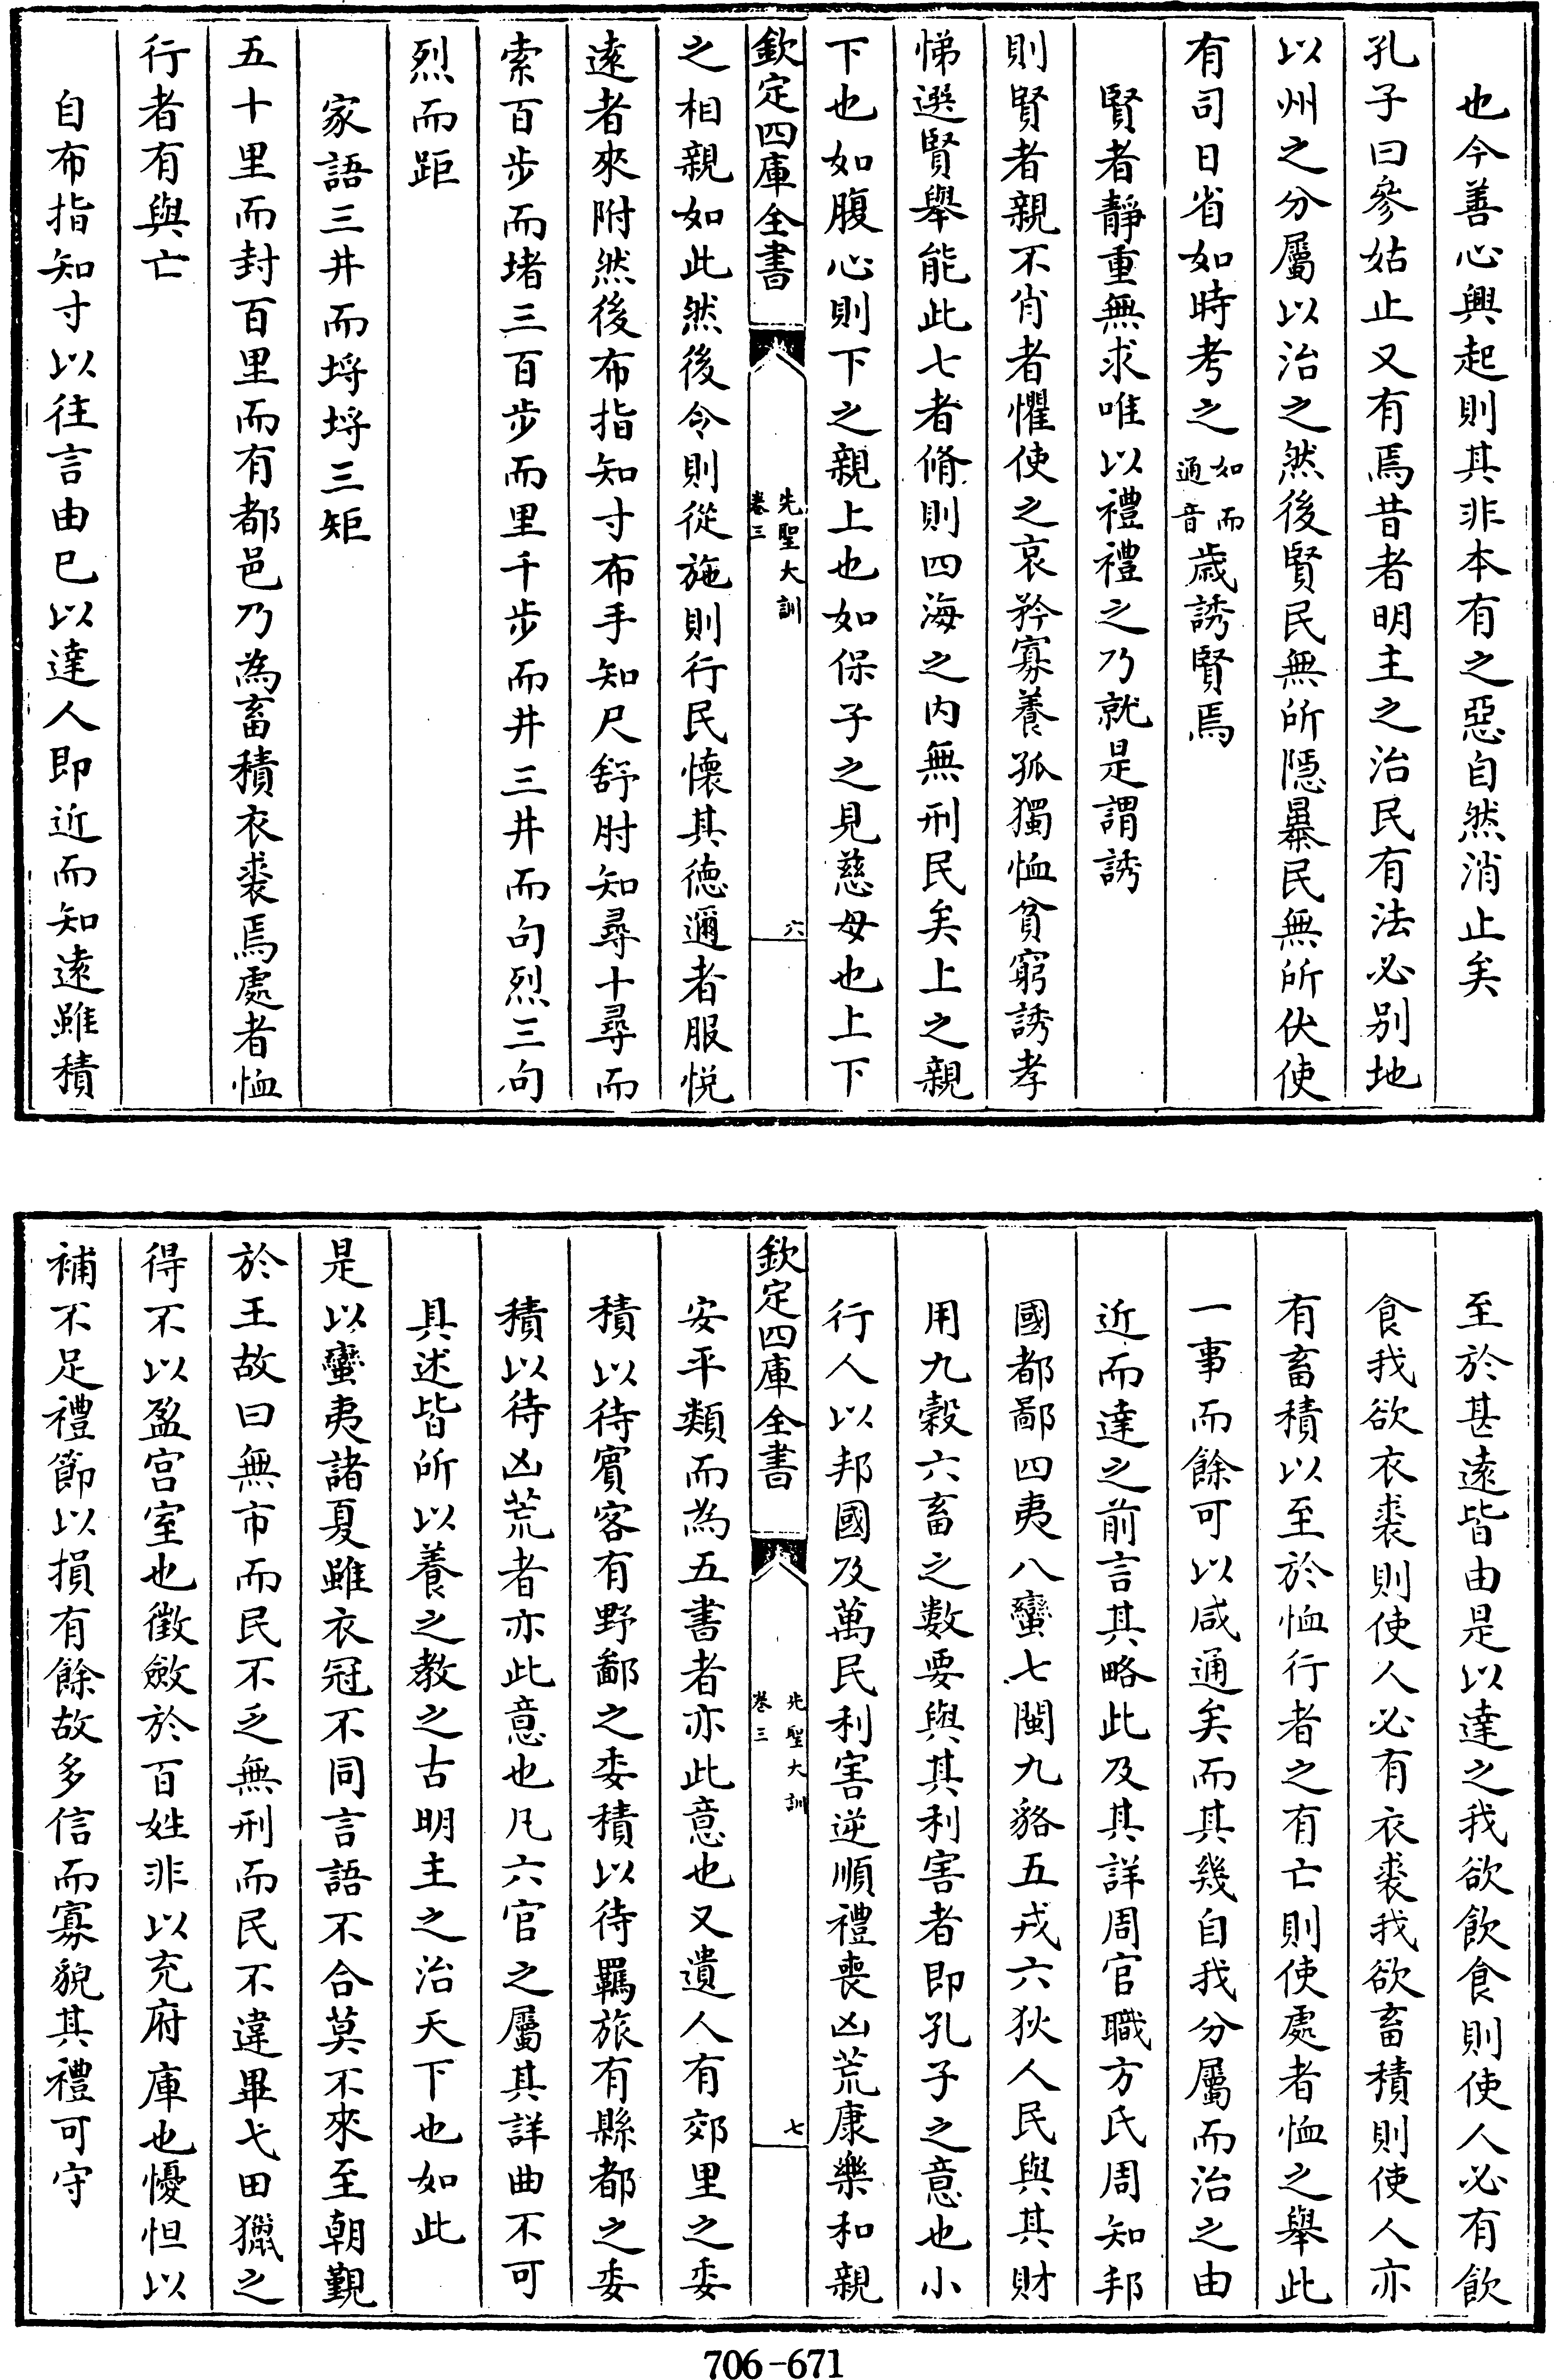 也今善心興起則其非本有之惡自然消止矣
孔子曰參姑止又有焉昔者明主之治民有法必别地
以州之分屬以治之然後賢民無所隱暴民無所伏使
有司日省如時考之如而通音歳誘賢焉
賢者靜重無求唯以禮禮之乃就是謂誘
則賢者親不肖者懼使之哀矜寡養孤獨恤貧窮誘孝
悌選賢舉能此七者脩則四海之内無刑民矣上之親
下也如腹心則下之親上也如保子之見慈母也上下
欽定四庫全書
先聖大訓
卷三
六
之相親如此然後令則從施則行民懐其徳邇者服悦
逺者來附然後布指知寸布手知尺舒肘知尋十尋而
索百步而堵三百步而里千步而井三井而句烈三句
烈而距
家語三井而埒埒三矩
五十里而封百里而有都邑乃為畜積衣裘焉處者恤
行者有與亡
自布指知寸以往言由已以達人即近而知逺雖積
至於甚逺皆由是以達之我欲飲食則使人必有飲
食我欲衣裘則使人必有衣裘我欲畜積則使人亦
有畜積以至於恤行者之有亡則使處者恤之舉此
一事而餘可以咸通矣而其幾自我分屬而治之由
近而達之前言其略此及其詳周官職方氏周知邦
國都鄙四夷八蠻七閩九貉五戎六狄人民與其財
用九穀六畜之數要與其利害者即孔子之意也小
行人以邦國及萬民利害逆順禮喪凶荒康樂和親
欽定四庫全書
先聖大訓
卷三
七
安平類而為五書者亦此意也又遺人有郊里之委
積以待賓客有野鄙之委積以待羈旅有縣都之委
積以待凶荒者亦此意也凡六官之屬其詳曲不可
具述皆所以養之教之古明主之治天下也如此
是以蠻夷諸夏雖衣冠不同言語不合莫不來至朝覲
於王故曰無市而民不乏無刑而民不違畢弋田獵之
得不以盈宫室也徵斂於百姓非以充府庫也慢怛以
補不足禮節以損有餘故多信而寡貌其禮可守
706-671